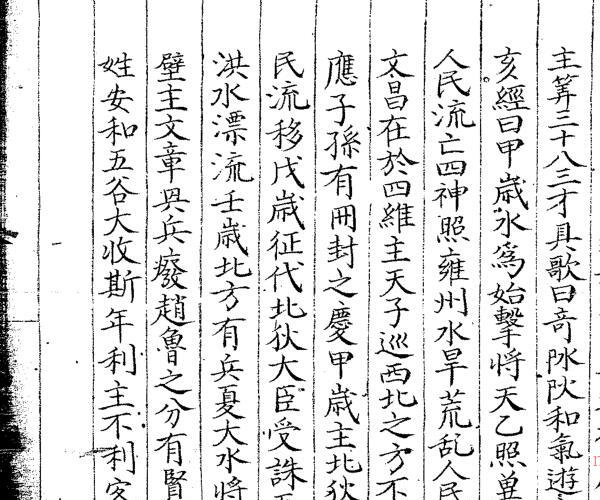 主筭三十八三才具歌曰奇陂阦和氣遊
亥經曰甲歲水為始擊將天乙照
人民流亡四神照雍州水旱荒乱人民
文昌在於四維主天子巡西北之方不
應子孫有冊封之慶甲歲主北狄
民流移戊歲征代北狄大臣受誅
洪水漂流壬歲北方有兵夏大水將
壁主文章畀兵癈趙魯之分有賢
姓安和五谷大收斯年利主不利客